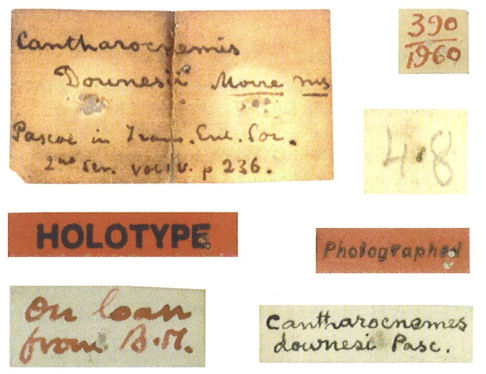 Cantharocnemis
Downesii Moore ms
Pascoe in Trans. Ent. Soc.
2nd Ser. vol. iv. p 236.
390
1960
48
HOLOTYPE
Photographed
On loan
from B.M.
Cantharocnemes
downesi Pasc.